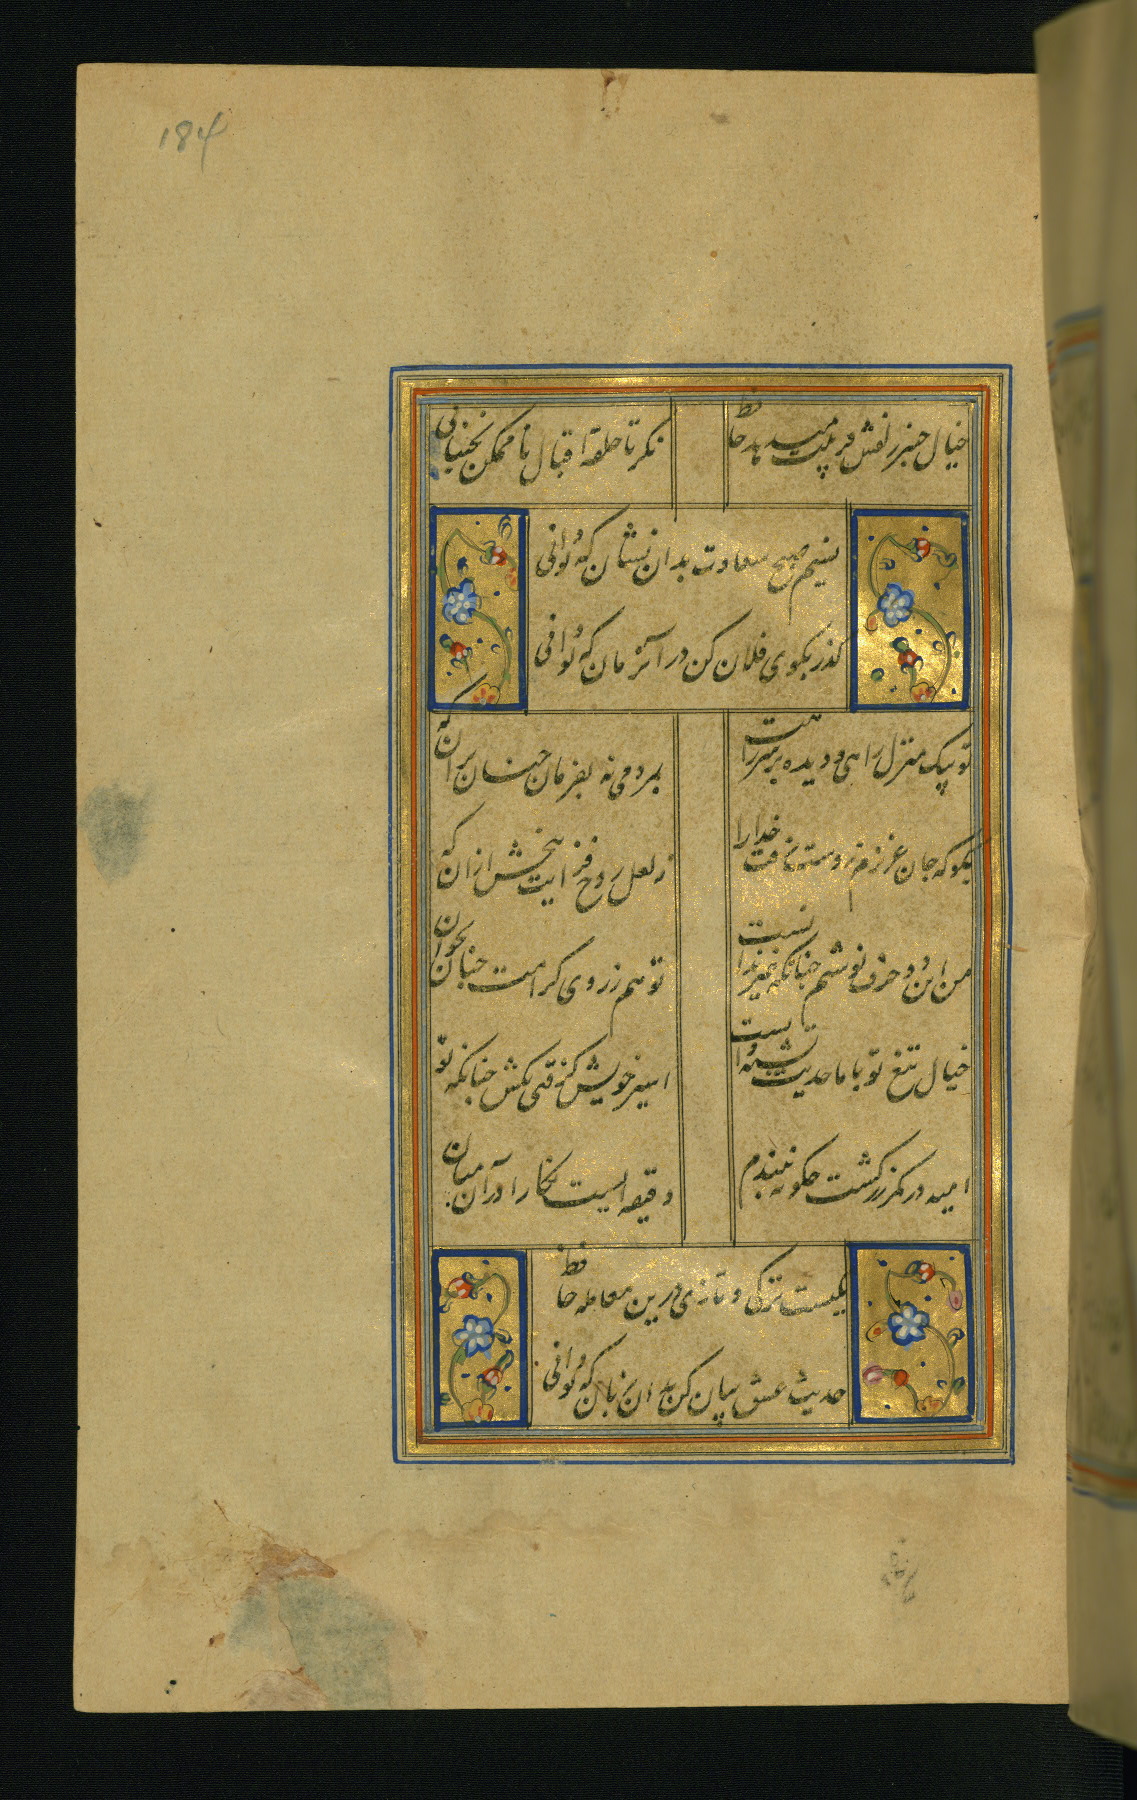 184
خیال چنبر زلفش فریبت میدهد حافظ
نگر تا حلقه اقبال ناممکن نجنبانی
نسیم صبح سعادت بدان نشان که تو دانی
گذر بکوی فلان کن در آن زمان که تو دانی
تو پیک منزل راهی و دیده بر سر راهت
بمردمی نه بفرمان چنان بران که
بگو که جان عزیزم ز دست رفت خدا را
ز لعل روح فزایت ببخش ازان که
من این دو حرف نوشتم چنانکه غیر ندانست
تو هم ز روی کرامت چنان بخوان
خیال تیغ تو با ما حدیث تشنه و آبست
اسیر خویش گرفتی بکش چنانکه تو
امید در کمر زرکشت چگونه نبندم
دقیقه ایست نگارا در آن میان
یکیست ترکی و تازی درین معامله حافظ
حدیث عشق بیان کن بهر زبان که تو دانی